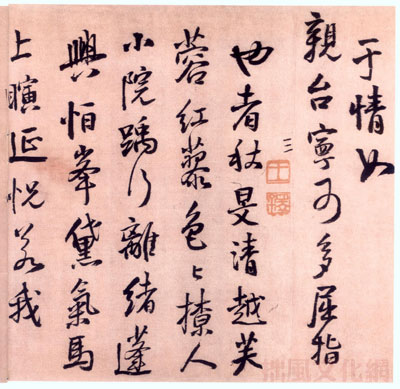 于情如
親台寧可多屈指
三
也者秋旻清越芙
蓉紅蓼色々撩人
小院踽行離緒蓬
興怕峯黛氣馬
上暝延悦若我
拙風文化網